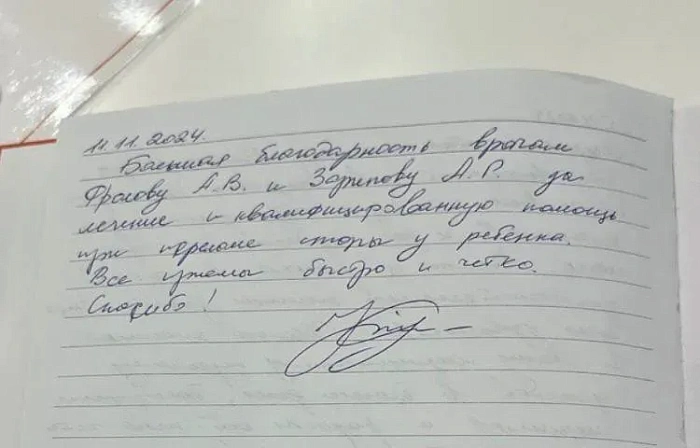 11.11.2024.
Большая благодарность врачам
Фролову А.В. и Зарипову А.Р. за
лечение и квалифицированную помощь
при переломе стопы у ребенка.
Все приемы быстро и четко.
Спасибо!